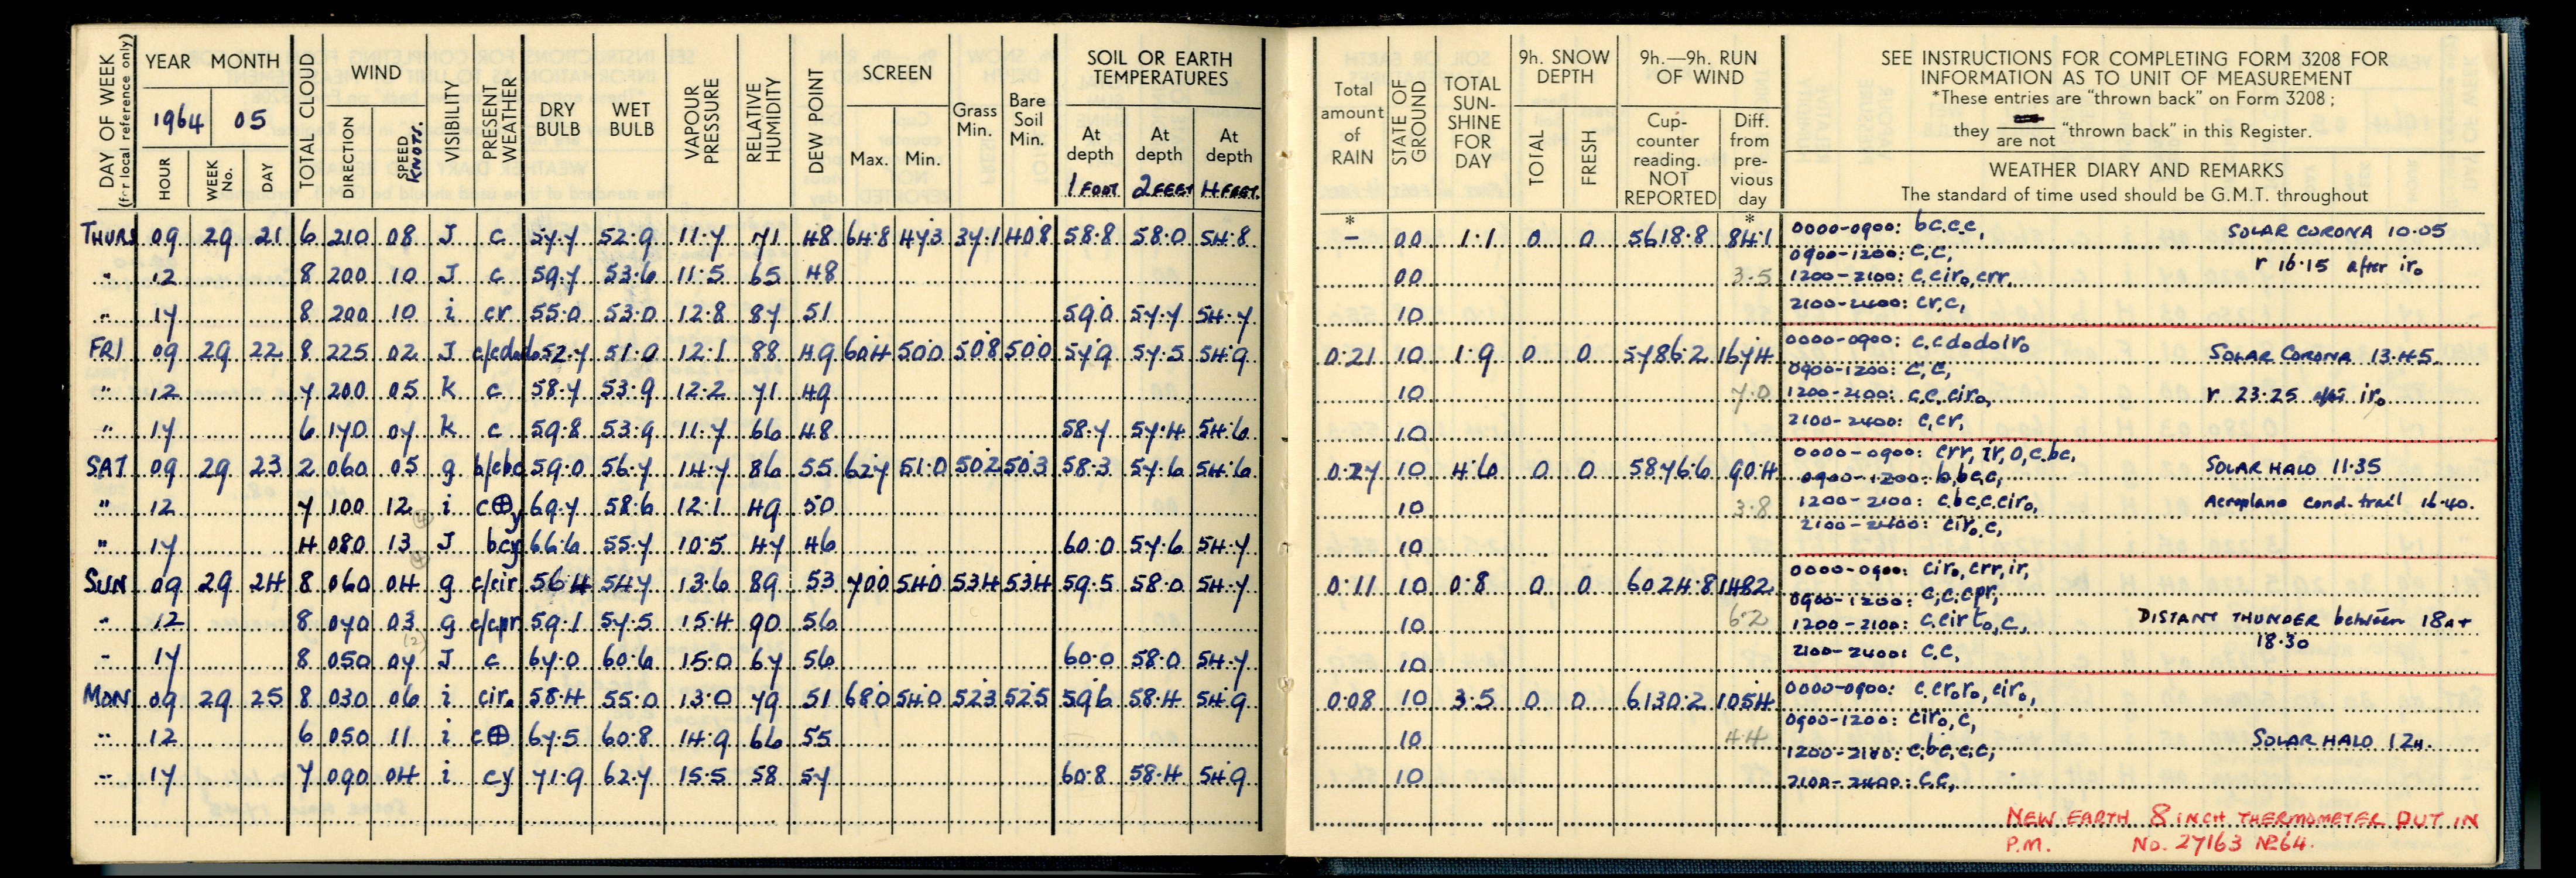 DAY OF WEEK (for local reference only)
YEAR MONTH
1964 05
HOUR WEEK No. DAY
TOTAL CLOUD
WIND
DIRECTION SPEED KNOTS.
VISIBILITY
PRESENT WEATHER
DRY BULB
WET BULB
VAPOUR PRESSURE
RELATIVE HUMIDITY
DEW POINT
SCREEN
Max. Min.
Grass Min.
Bare Soil Min.
SOIL OR EARTH TEMPERATURES
At depth 1 FOOT At depth 2 FEET At depth 4 FEET.
THURS 09 29 21 6 210 08 J c 57.7 52.9 11.7 71 48 64.8 47.3 37.1 40.8 58.8 58.0 54.8
" 12 8 200 10 J c 59.7 53.6 11.5 65 48
" 17 8 200 10 i cr 55.0 53.0 12.8 87 51 59.0 57.7 54.7
FRI 09 29 22 8 225 02 J c/cdodo 52.7 51.0 12.1 88 49 60.4 50.0 50.8 50.0 57.9 57.5 54.9
" 12 7 200 05 k c 58.7 53.9 12.2 71 49
" 17 6 170 07 k c 59.8 53.9 11.7 66 48 58.7 57.4 54.6
SAT 09 29 23 2 060 05 g b/cbc 59.0 56.7 14.7 86 55 62.7 51.0 50.2 50.3 58.3 57.6 54.6
" 12 7 100 12 i c⊕y 69.7 58.6 12.1 49 50
" 17 4 080 13 J bcy 66.6 55.7 10.5 47 46 60.0 57.6 54.7
SUN 09 29 24 8 060 04 g c/cir 56.4 54.7 13.6 89 53 70.0 54.0 53.4 53.4 59.5 58.0 54.7
" 12 8 070 03 g c/cpr 59.1 57.5 15.4 90 56
(2)
" 17 8 050 07 J c 67.0 60.6 15.0 67 56 60.0 58.0 54.7
MON 09 29 25 8 030 06 i ciro 58.4 55.0 13.0 79 51 68.0 54.0 52.3 52.5 59.6 58.4 54.9
" 12 6 050 11 i c⊕ 67.5 60.8 14.9 66 55
" 17 7 090 04 i cy 71.9 62.7 15.5 58 57 60.8 58.4 54.9
Total amount of RAIN
STATE OF GROUND
TOTAL SUN-SHINE FOR DAY
9h. SNOW DEPTH
TOTAL FRESH
9h.—9h. RUN OF WIND
Cup-counter reading. NOT REPORTED
Diff. from pre-vious day
SEE INSTRUCTIONS FOR COMPLETING FORM 3208 FOR
INFORMATION AS TO UNIT OF MEASUREMENT
*These entries are "thrown back" on Form 3208;
they are not "thrown back" in this Register.
WEATHER DIARY AND REMARKS
The standard of time used should be G.M.T. throughout
* *
- 00 1.1 0 0 5618.8 84.1 0000-0900: bc.c.c, SOLAR CORONA 10.05
0900-1200: c,c, r 16.15 after iro
00 3.5 1200-2100: c,ciro,crr,
10 2100-2400: cr,c,
0.21 10 1.9 0 0 5786.2 167.4 0000-0900: c,cdodoiro SOLAR CORONA 13.45.
0900-1200: c,c,
10 7.0 1200-2100: c,c,ciro, r 23.25 after iro
10 2100-2400: c,cr,
0.27 10 4.6 0 0 5876.6 90.4 0000-0900: crr, ir, o,c,bc, SOLAR HALO 11.35
0900-1200: b,bc,c,
10 3.8 1200-2100: c,bc,c,ciro, Aeroplane Cond. trail 16.40.
10 2100-2400: ciro,c,
0.11 10 0.8 0 0 6024.8 148.2 0000-0900: ciro,crr,ir,
0900-1200: c,c,cpr,
10 6.2 1200-2100: c,cirto,c, DISTANT THUNDER between 18 AT
18.30
10 2100-2400: c.c,
0.08 10 3.5 0 0 6130.2 105.4 0000-0900: c,croro,ciro,
0900-1200: ciro,c,
10 4.4 1200-2100: c,bc,c,c, SOLAR HALO 12H.
10 2100-2400: c.c,
NEW EARTH 8 INCH THERMOMETER PUT IN
P.M. No. 27163 NP64.